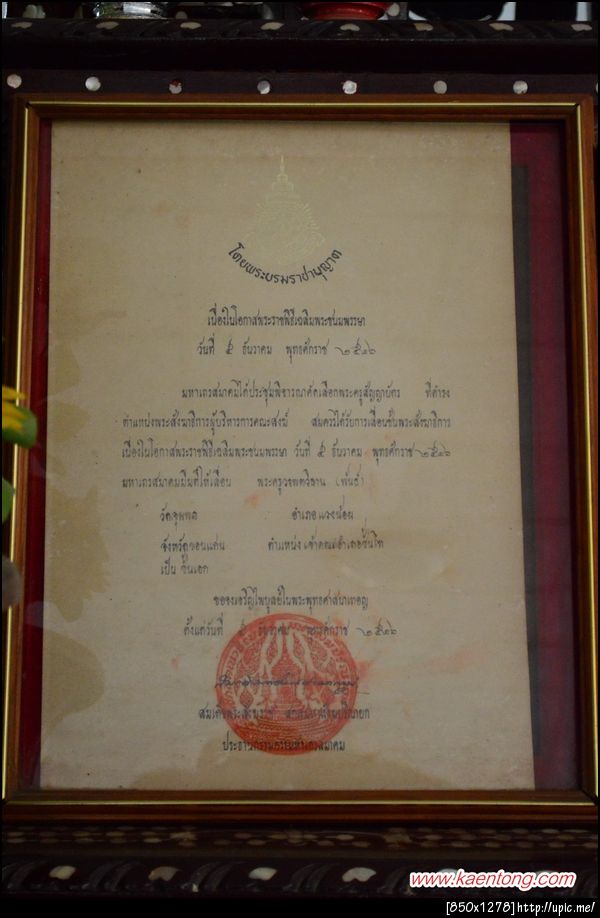 โดยพระบรมราชานุญาต
เนื่องในโอกาสพระราชพิธีเฉลิมพระชนมพรรษา
วันที่ ๕ ธันวาคม พุทธศักราช ๒๕๑๖
มหาเถรสมาคมได้ประชุมพิจารณาคัดเลือกพระครูสัญญาบัตร ที่ดำรง
ตำแหน่งพระสังฆาธิการผู้บริหารการคณะสงฆ์ สมควรได้รับการเลื่อนชั้นพระสังฆาธิการ
เนื่องในโอกาสพระราชพิธีเฉลิมพระชนมพรรษา วันที่ ๕ ธันวาคม พุทธศักราช ๒๕๑๖
มหาเถรสมาคมมีมติให้เลื่อน (พันธ์)
วัดจุมพล อำเภอแวงน้อย
จังหวัดขอนแก่น ตำแหน่ง เจ้าคณะอำเภอชั้นโท
เป็น ชั้นเอก
ขอจงเจริญไพบูลย์ในพระพุทธศาสนาเทอญ
ตั้งแต่วันที่ ๕ ธันวาคม พุทธศักราช ๒๕๑๖
สมเด็จพระสังฆราช สกลมหาสังฆปริณายก
ประธานกรรมการมหาเถรสมาคม
www.kaentong.com
[850x1278]http://upic.me/